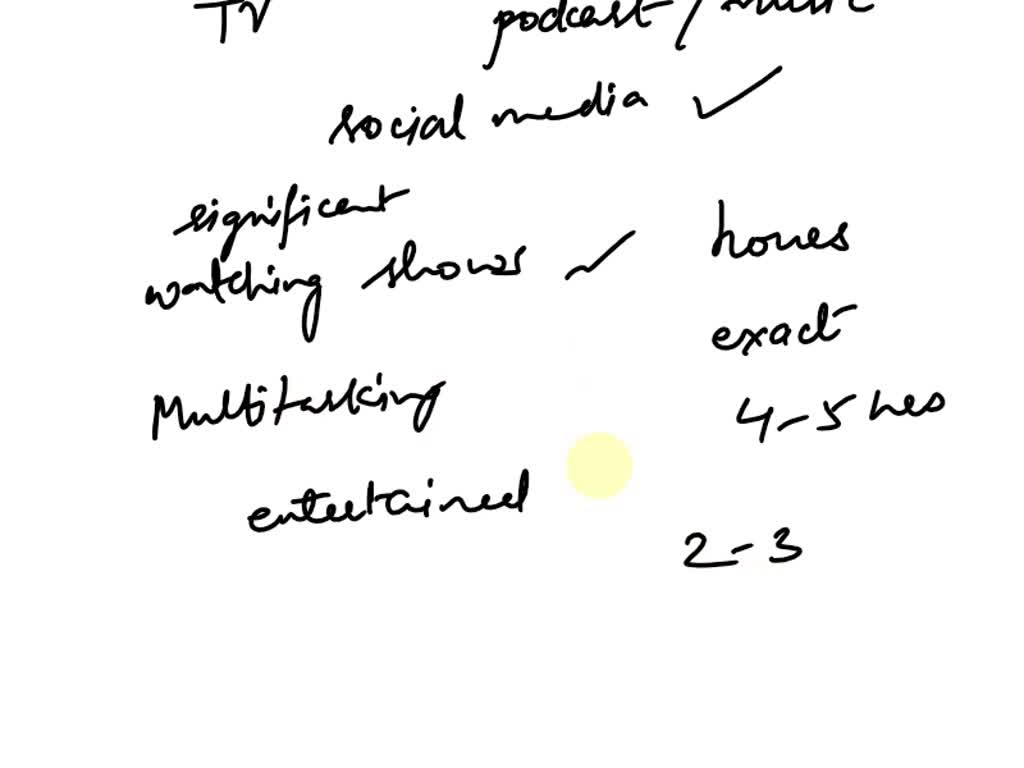 TV podcast / music
social media ✓
significant
watching shows ✓ hours
exact
Multitasking 4-5 hrs
entertained
2-3